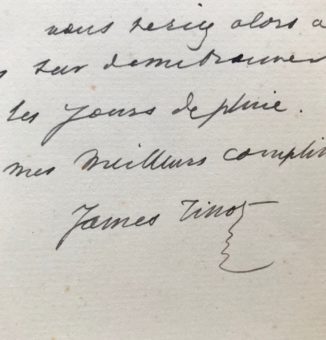 vous seriez alors a
s sur de me trouver
les jours de pluie.
mes meilleurs compli
James Tissot